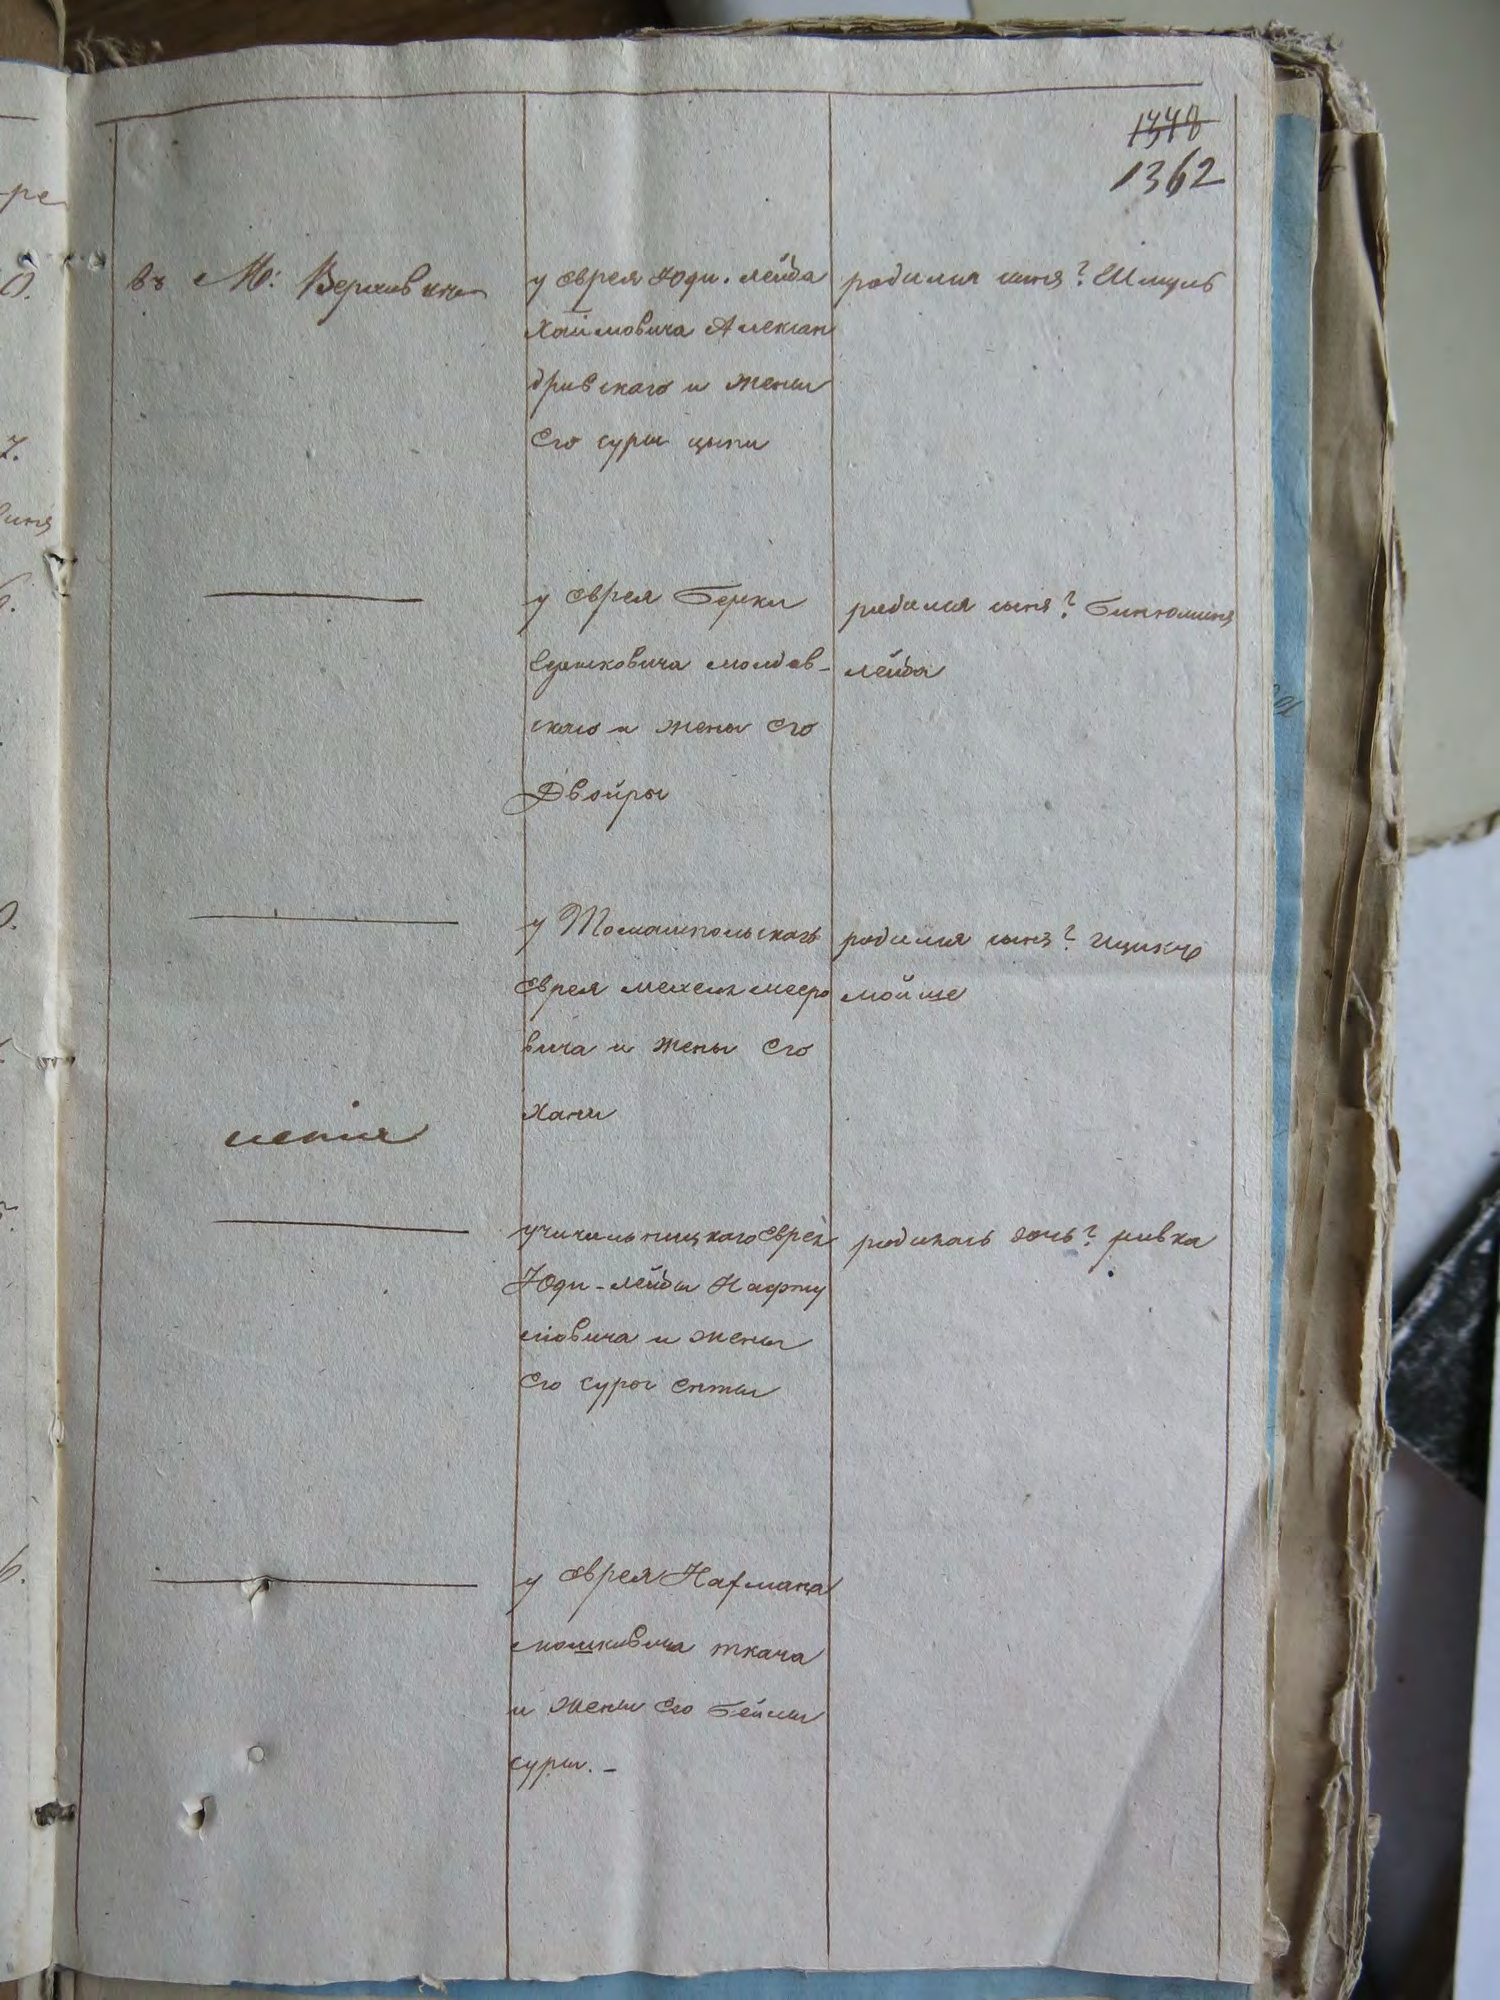 1348
1362
въ М: Верховкѣ
у еврея Юди. лейба
Хаймовича Алексан
дривскаго и жены
Его суры ципи
родился сынъ? Шмуль
у еврея Берки
молдав-
скаго и жены Его
Двойры
родился сынъ? Биньюминъ
лейба
у Томашпольскаго
еврея мехеля мееро
вича и жены Его
Хани
родился сынъ? Ицикъ
мойше
учичильницкаго еврея
Юди-лейбы Нафту
ловича и жены
Его суры ентли
родилась дочь? ривка
у еврея Нахмана
мошковича ткача
и жены Его бейлы
суры. -